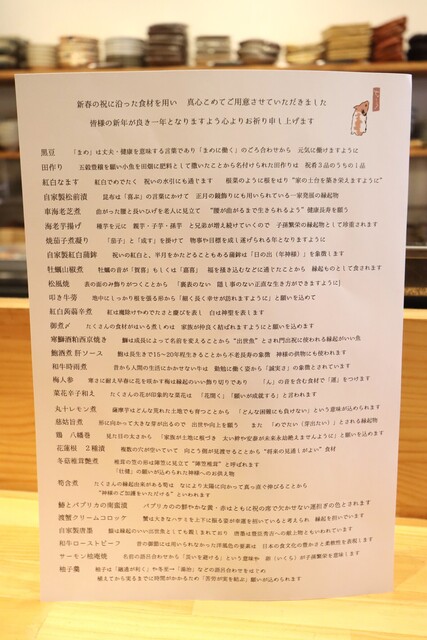 新春の祝に沿った食材を用い　真心こめてご用意させていただきました
皆様の新年が良き一年となりますよう心よりお祈り申し上げます
黒豆　「まめ」は丈夫・健康を意味する言葉であり「まめに働く」のごろ合わせから　元気に働けますように
田作り　五穀豊穣を願い小魚を田畑に肥料として撒いたことから名付けられた田作りは　祝肴３品のうちの１品
紅白なます　紅白でめでたく　祝いの水引にも通じます　根菜のように根をはり“家の土台を築き栄えますように”
自家製松前漬　昆布は「喜ぶ」の言葉にかけて　正月の鏡飾りにも用いられている一家発展の縁起物
車海老芝煮　曲がった腰と長いひげを老人に見立て　“腰が曲がるまで生きられるよう”健康長寿を願う
海老芋揚げ　種芋を元に　親芋・子芋・孫芋　と兄弟が増え続けていくので　子孫繁栄の縁起物として珍重されます
焼茄子煮凝り　「茄子」と「成す」を掛けて　物事や目標を成し遂げられる年となりますように
自家製紅白蒲鉾　祝いの紅白と、半月をかたどることもある蒲鉾は「日の出（年神様）」を象徴します
牡蠣山椒煮　牡蠣の音が「賀喜」もしくは「嘉喜」　福を掻き込むなどに通じたことから　縁起ものとして食されます
松風焼　表の面のみ飾りがつくことから　「裏表のない　隠し事のない正直な生き方ができますように」
叩き牛蒡　地中にしっかり根を張る形から　「細く長く幸せが訪れますように」と願いを込めて
紅白蒟蒻辛煮　紅は魔除けやめでたさと慶びを表し　白は神聖を表します
御煮〆　たくさんの食材がはいる煮しめは　家族が仲良く結ばれますようにと願いを込めます
寒鰤酒粕西京焼き　鰤は成長によって名前を変えることから“出世魚”とされ門出祝に使われる縁起がいい魚
鮑酒煮 肝ソース　鮑は長生きで15～20年程生きることから不老長寿の象徴　神様の供物にも使われます
和牛時雨煮　昔から人間の生活にかかせない牛は　勤勉に働く姿から「誠実さ」の象徴とされています
梅人参　寒さに耐え早春に花を咲かす梅は縁起のいい飾り切りであり　「ん」の音を含む食材で「運」をつけます
菜花辛子和え　たくさんの花が印象的な菜花は　「花開く」「願いが成就する」と言われます
丸十レモン煮　薩摩芋はどんな荒れた土地でも育つことから　「どんな困難にも負けない」という意味が込められます
慈姑旨煮　形に向かって大きな芽が出るので　出世や向上を願う　また　「めでたい（芽出たい）」とされる縁起物
鶏　八幡巻　見た目の太さから　「家族が土地に根づき　太い絆や安泰が末来永劫絶えませんように」と願いを込めます
花蓮根　２種漬　複数の穴が空いていて　向こう側が見渡せることから“将来の見通しがよい”食材
冬菇椎茸煮　椎茸の笠の形は陣笠に見立て“陣笠椎茸”と呼ばれます
「壮健」の願いが込められた神様へのお供え物
筍含煮　たくさんの縁起由来がある筍は　なにより太陽に向かって真っ直ぐ伸びることから
“神様のご加護をいただける”といわれます
鰆とパプリカの南蛮漬　パプリカのの鮮やかな黄・赤はともに祝の席で欠かせない運担ぎの色とされます
渡蟹クリームコロッケ　蟹は大きなハサミを上下に振る姿が幸運を招いていると考えられ　縁起を担いで
自家製唐墨
和牛ローストビーフ
サーモン柚庵焼
柚子羹